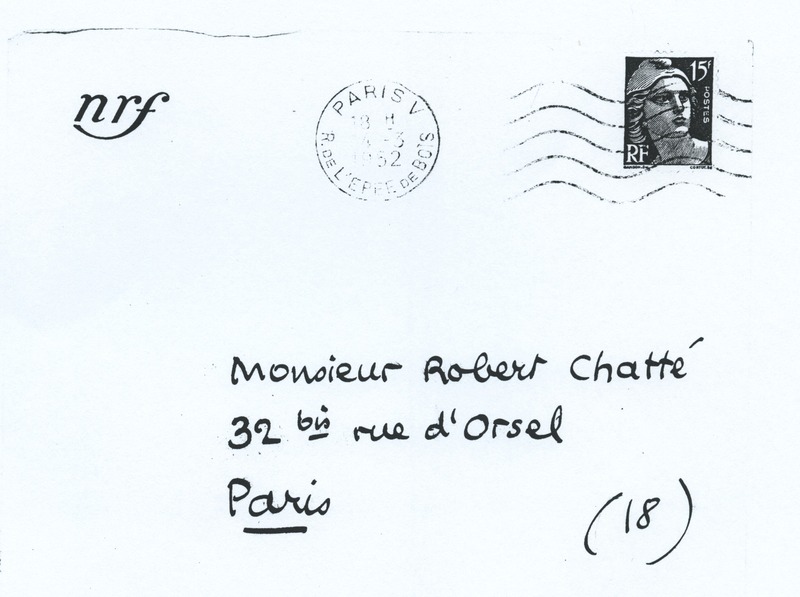 nrf
PARIS V
18 H
4-3
1952
R. DE L'EPEE DE BOIS
15F
POSTES
RF
Monsieur Robert Chatté
32 bis rue d'Orsel
Paris
(18)